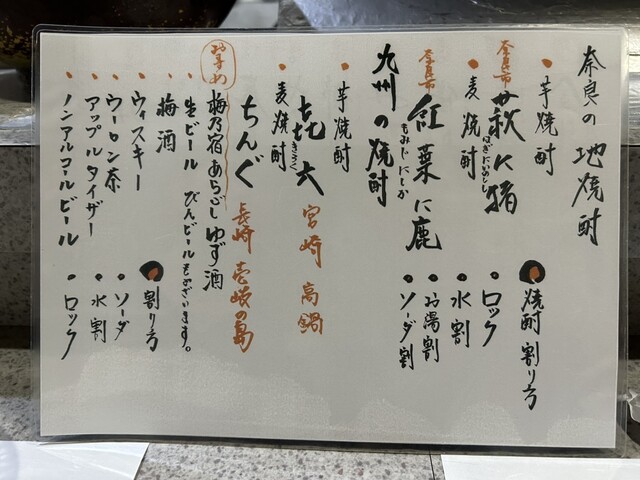 奈良の地焼酎
・芋焼酎
奈良市 萩に猪
はぎにいのしし
・麦焼酎
奈良市 紅葉に鹿
もみじにしか
焼酎 割り方
・ロック
・水割
・お湯割
・ソーダ割
九州の焼酎
・芋焼酎
㐂六 宮崎 高鍋
きろく
・麦焼酎
ちんぐ 長崎 壱岐の島
おすすめ 梅乃宿 あらごし ゆず酒
・生ビール びんビールもございます。
・梅酒
・ウィスキー
・ウーロン茶
・アップルタイザー
・ノンアルコールビール
割り方
・ソーダ
・水割
・ロック